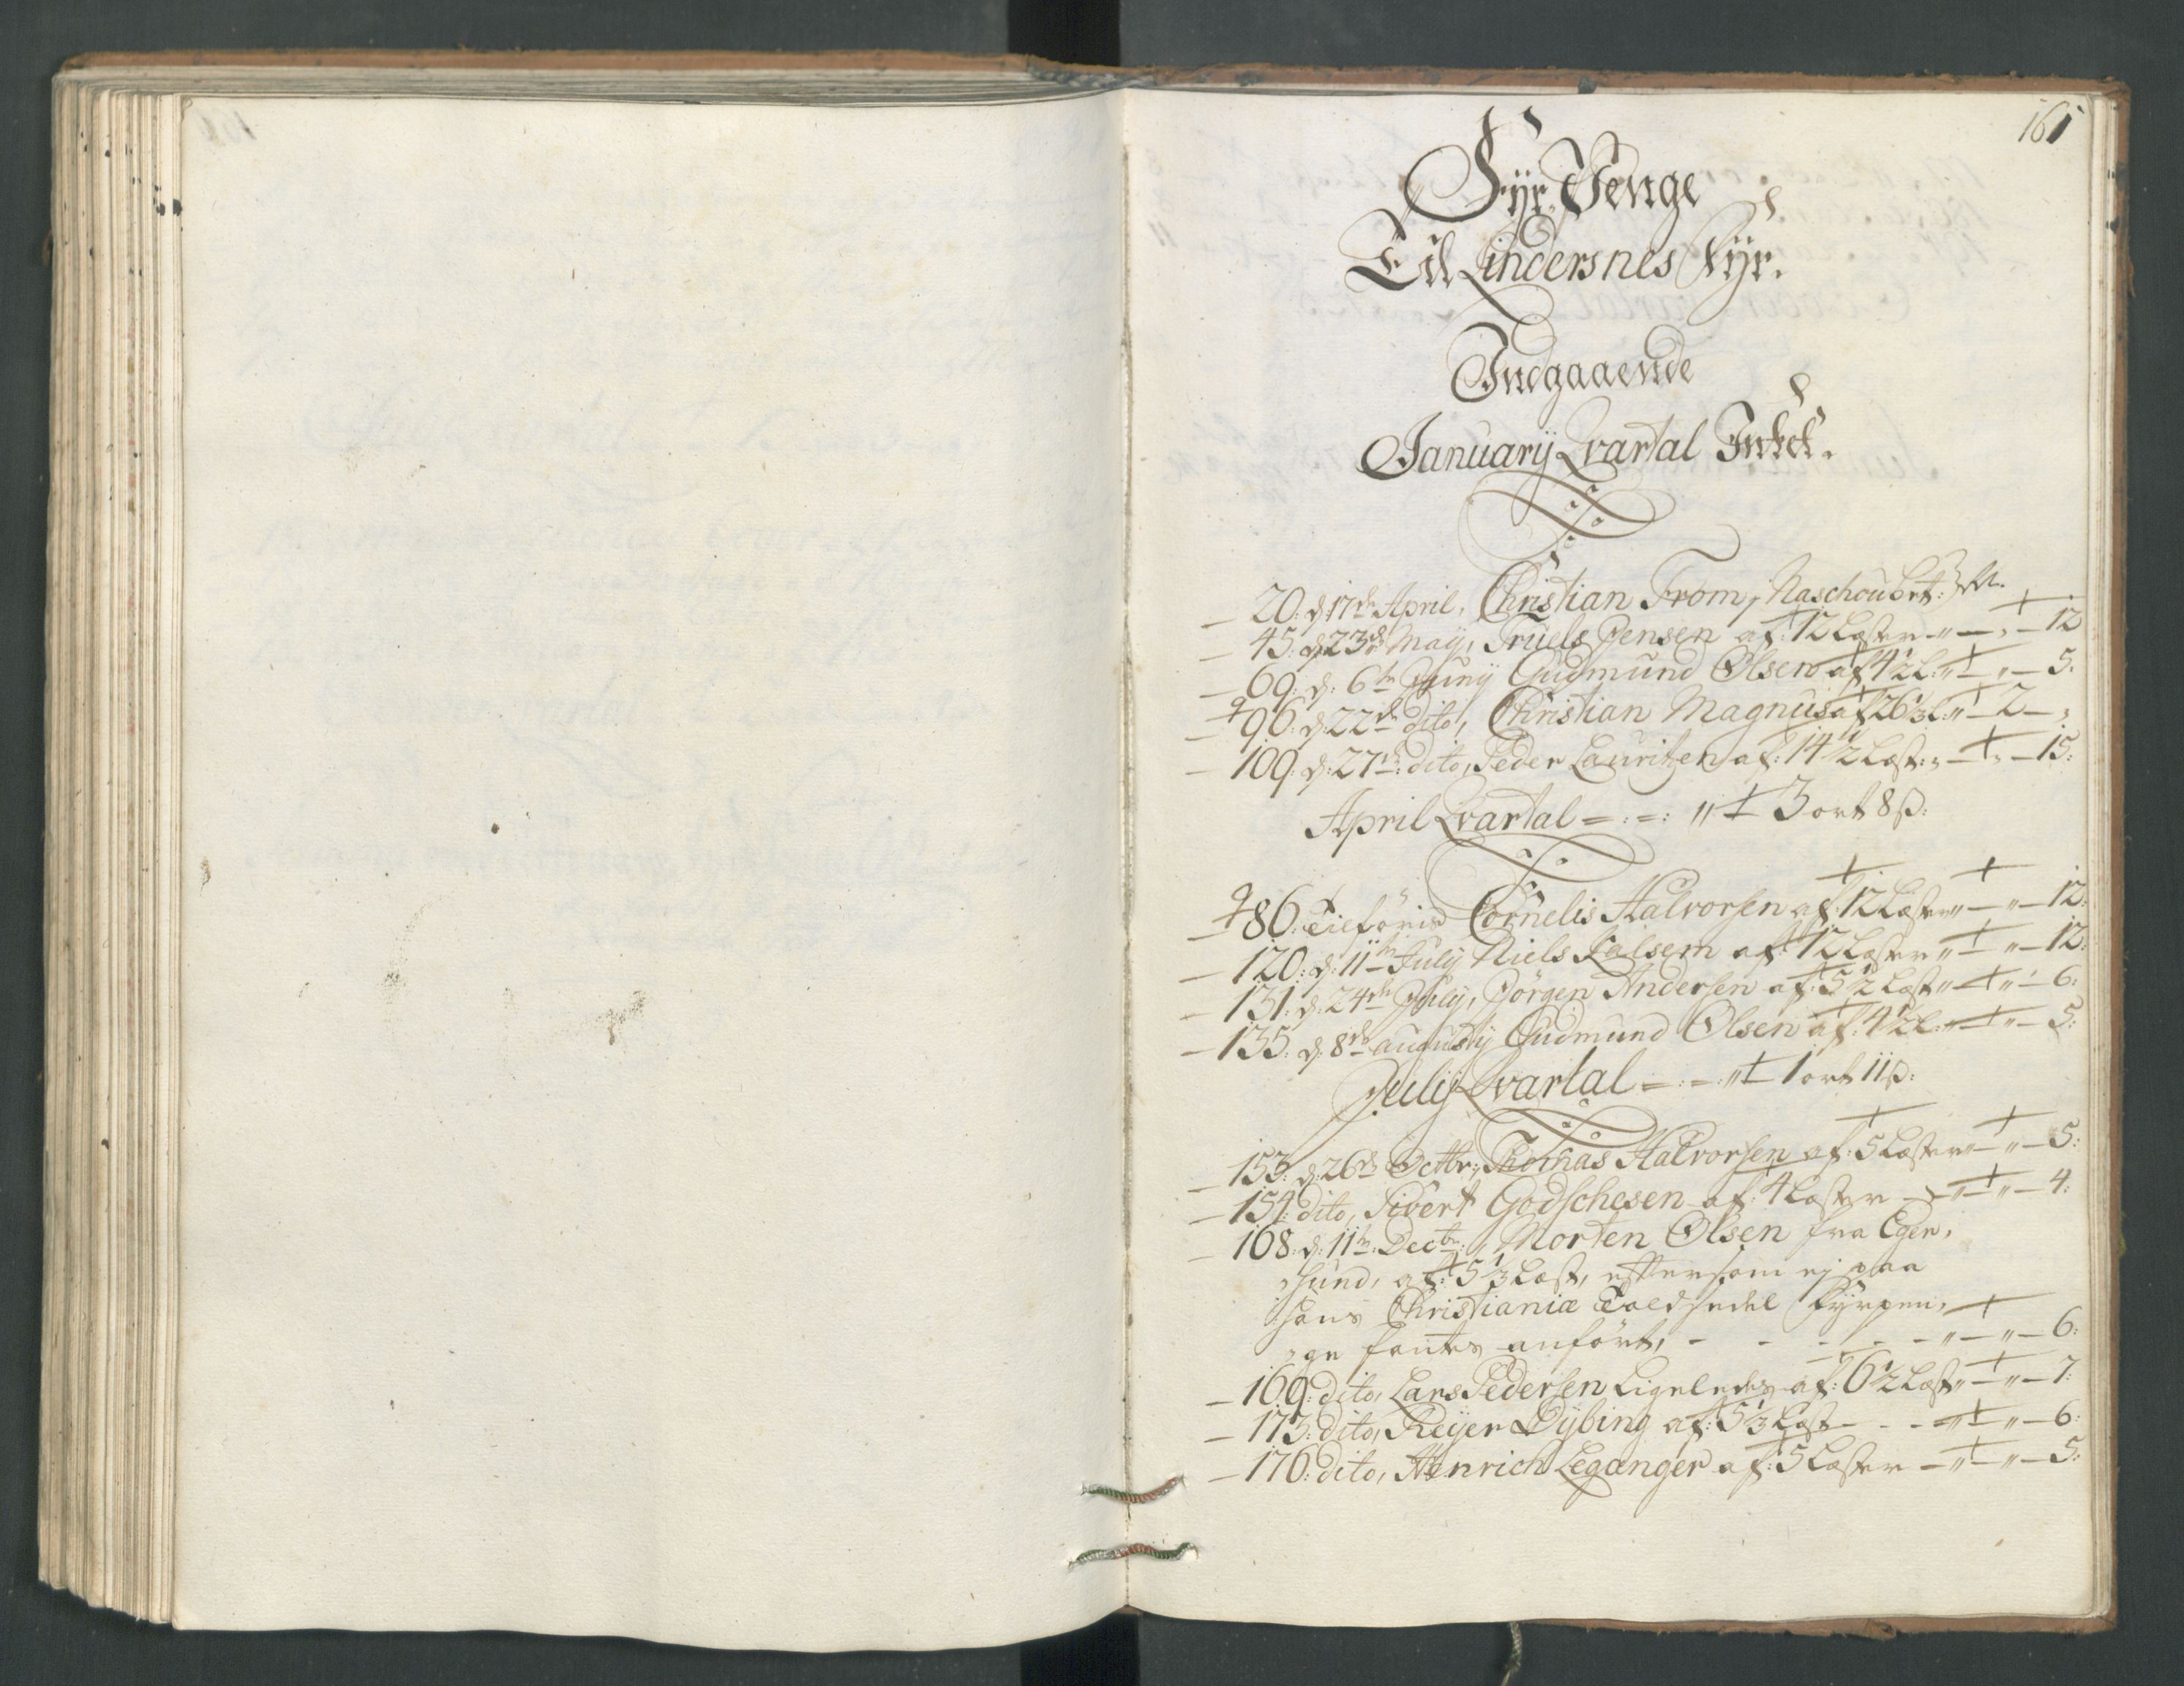 161
Fyr, Penge
Til Lindersnes Fyr.
Indgaaende
Januarij Qvartal Intet.
20: d: 17de April, Christian From, Naschou
45: d: 23de Maij, Truels Jensen af: 12 Læster - " - " - 12
69: d: 6te Junij Gudmund Olsen af 4½ L: " - " - 5:
96: d: 22de dito, Christian Magnus af 26⅓ L: " - 2 - "
109: d: 27de: dito, Peder Lauritzen af: 14½ Læst: " - " - 15:
April Qvartal =:=: " - 3 ort 8 ß:
86: Cornelis Halvorsen af: 12 Læster " - " - 12:
120: d: 11te July Niels Kalsem af: 12 Læster " - " - 12:
131: d: 24de July, Jörgen Andersen af: 5½ Læst " - " - 6:
135: d: 8de augusty Gudmund Olsen af: 4½ L: " - " - 5:
Julij Qvartal =:=: " - 1 ort 11 ß:
153: d: 26de Octbr: Thomas Halvorsen af: 5 Læster " - " - 5:
154: dito, Sivert Godschesen af: 4 Læster - " - " - 4:
168: d: 11te: Decbr: " Morten Olsen fra Eger,
sund, af: 5⅓ Læst, eftersom ej paa
hans Christianiæ Toldsedel fyrpen,
ge fantes anført, - - - - - " - " - 6:
169: dito, Lars Pedersen Ligeledes af: 6½ Læst " - " - 7:
173: dito, Reyer Dybing af: 5⅓ Læst - - - " - " - 6:
176: dito, Henrich Leganger af: 5 Læster - " - " - 5: